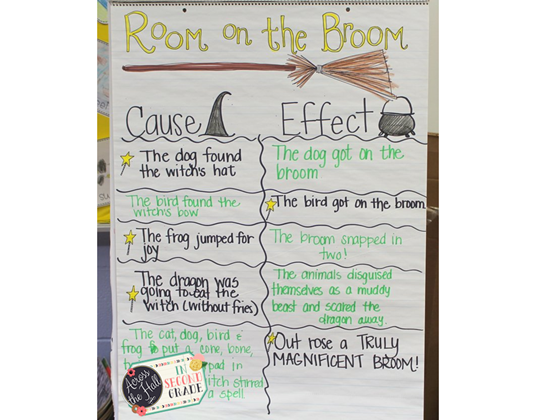 Room on the Broom
Cause
Effect
The dog found
the witch's hat
The dog got on the
broom
The bird found the
witch's bow
The bird got on the broom
The frog jumped for
joy
The broom snapped in
two!
The dragon was
going to eat the
witch (without fries)
The animals disguised
themselves as a muddy
beast and scared the
dragon away.
The cat, dog, bird &
frog put a cone, bone,
pad in
itch stirred
a spell.
Out rose a TRULY
MAGNIFICENT BROOM!
Across
the Hall
IN
SECOND
GRADE